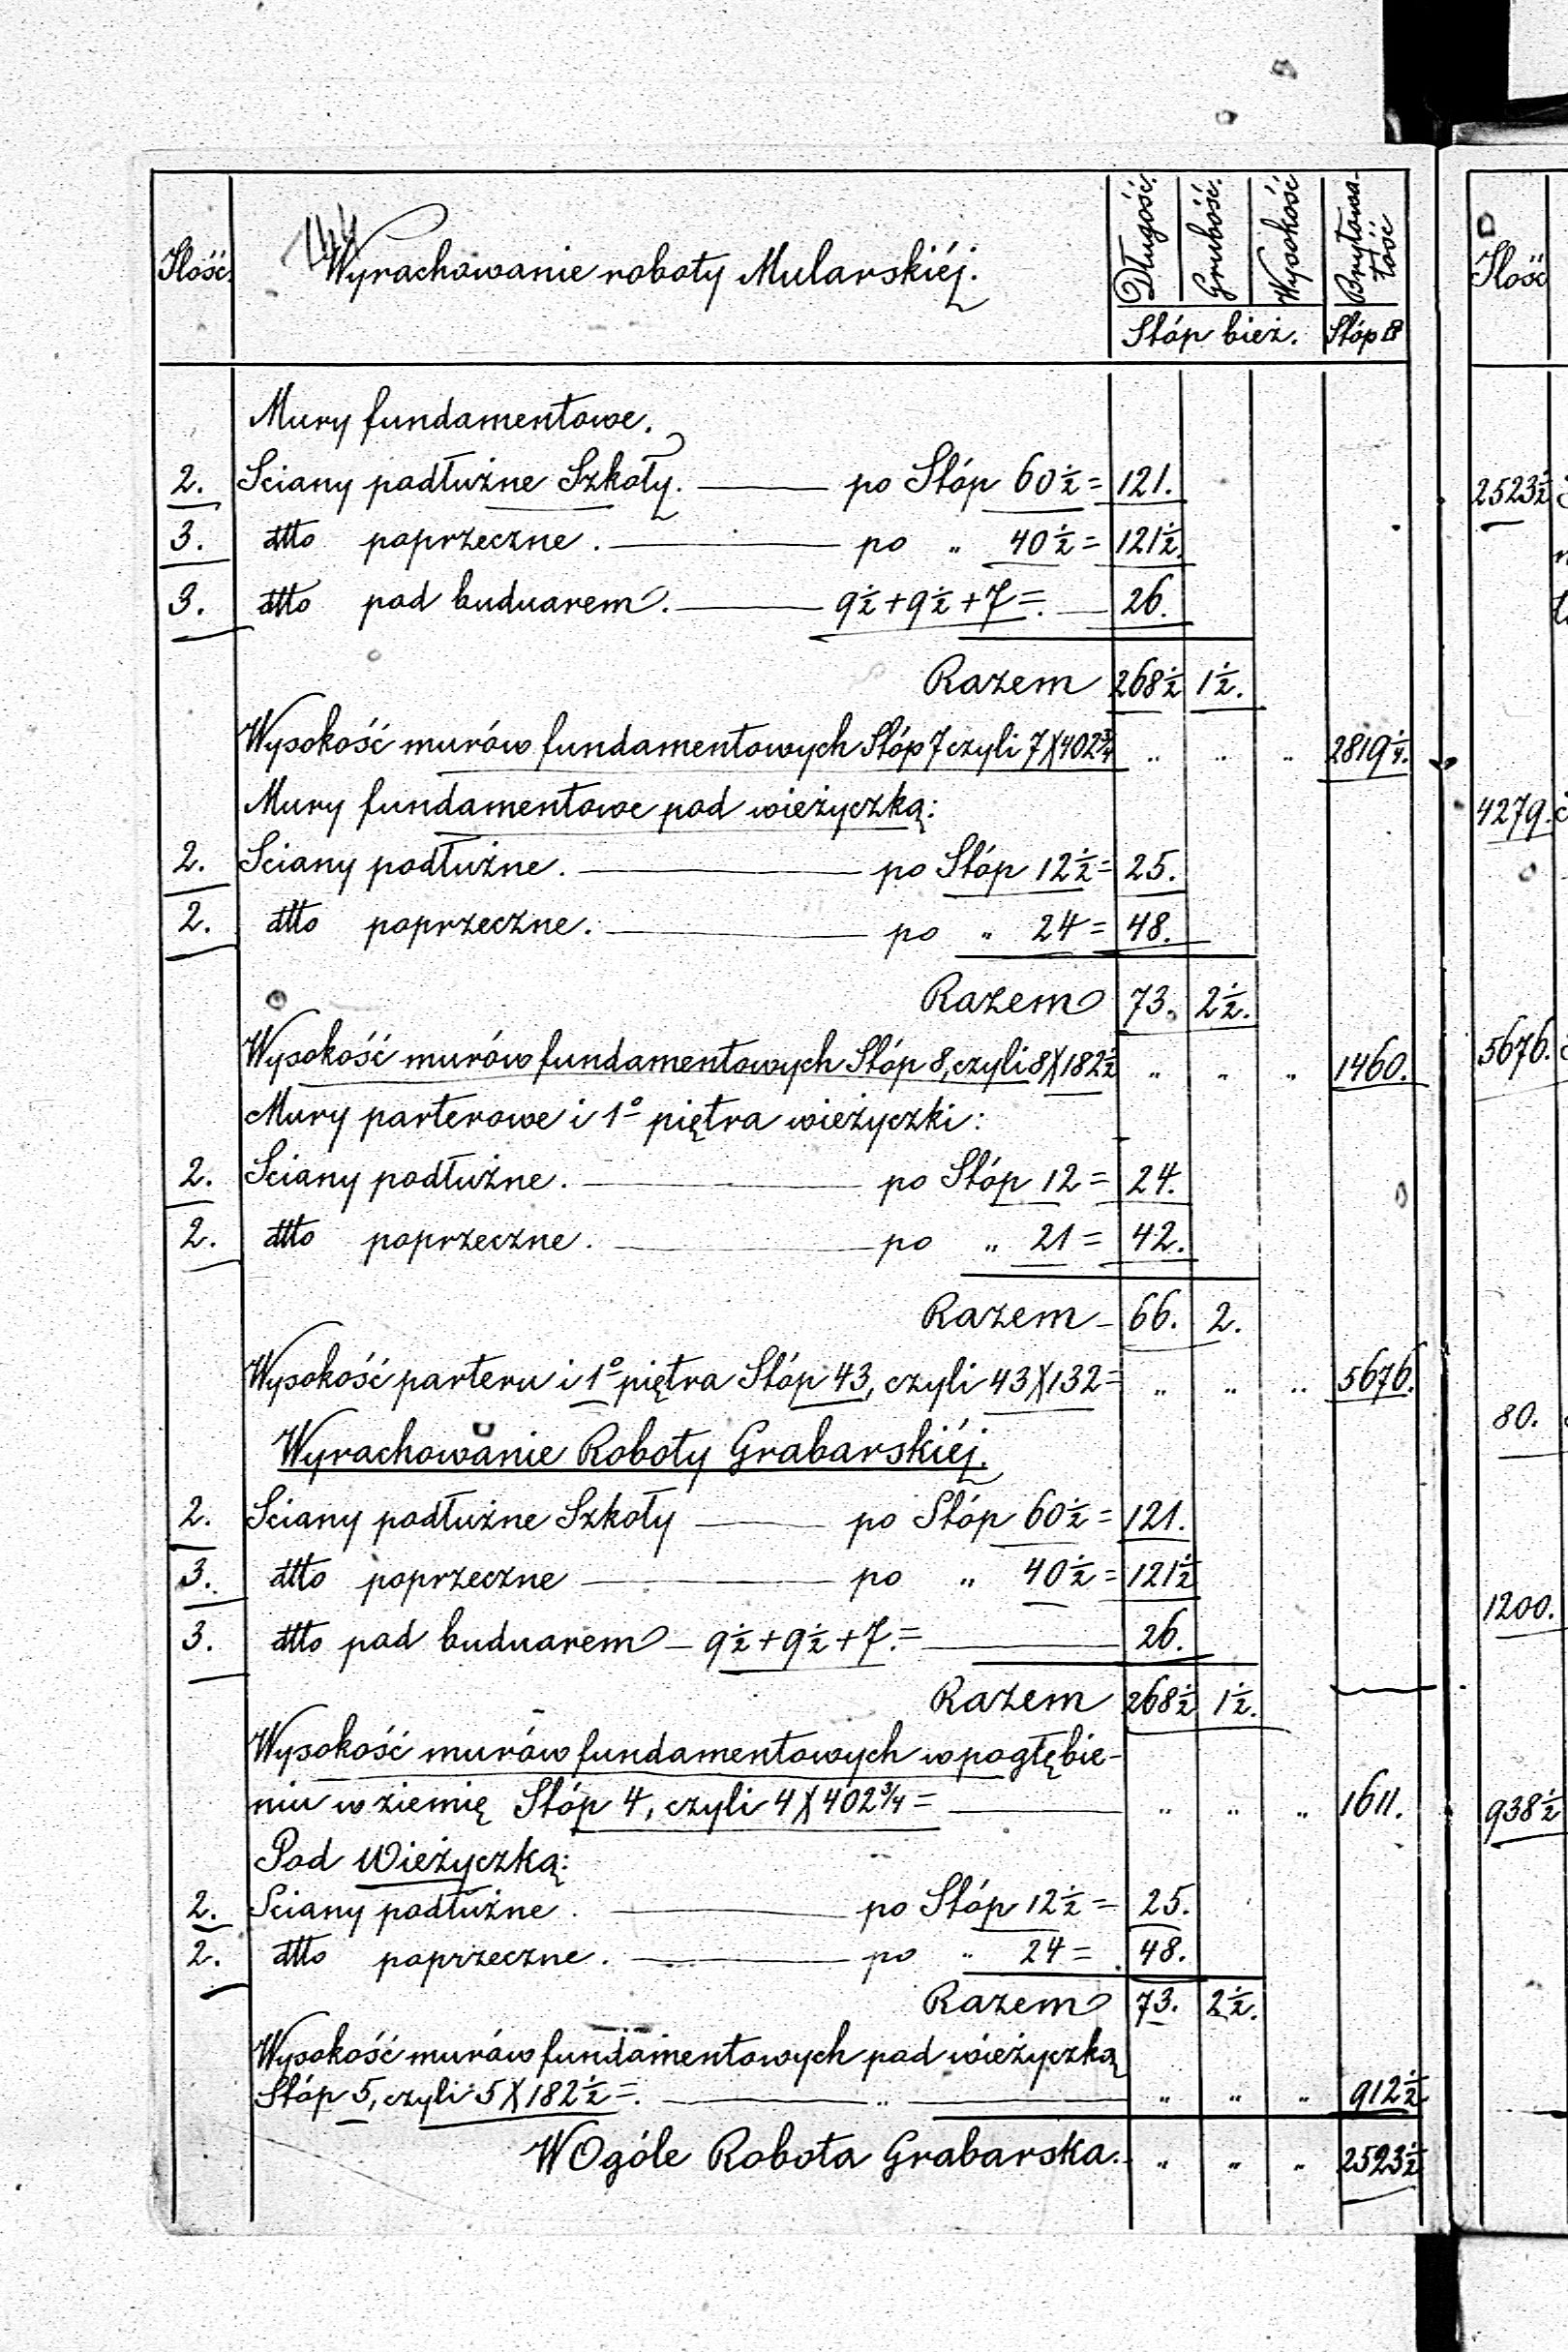 Ilość. Wyrachowanie roboty Mularskiéj. Długość. Grubość. Wysokość Bryłowatość
Stóp bież. Stóp
Mury fundamentowe.
2. Sciany podłużne Szkoły. po Stóp 60 1/2 = 121.
3. dtto poprzeczne. po „ 40 1/2 = 121 1/2.
3. dtto pod buduarem. 9 1/2 + 9 1/2 + 7 = 26.
Razem 268 1/2 1 1/2.
Wysokość murów fundamentowych Stóp 7 czyli 7 X 402 3/4 „ „ „ 2819 1/4.
Mury fundamentowe pod wieżyczką:
2. Sciany podłużne. po Stóp 12 1/2 = 25.
2. dtto poprzeczne. po „ 24 = 48.
Razem 73. 2 1/2.
Wysokość murów fundamentowych Stóp 8, czyli 8 X 182 1/2 „ „ „ 1460.
Mury parterowe i 1o piętra wieżyczki:
2. Sciany podłużne. po Stóp 12 = 24.
2. dtto poprzeczne. po „ 21 = 42.
Razem 66. 2.
Wysokość parteru i 1o piętra Stóp 43, czyli 43 X 132 = „ „ „ 5676.
Wyrachowanie Roboty Grabarskiéj.
2. Sciany podłużne Szkoły po Stóp 60 1/2 = 121.
3. dtto poprzeczne po „ 40 1/2 = 121 1/2
3. dtto pod buduarem 9 1/2 + 9 1/2 + 7. = 26.
Razem 268 1/2 1 1/2.
Wysokość murów fundamentowych w pogłębie-
niu w ziemię Stóp 4, czyli 4 X 402 3/4 = „ „ „ 1611.
Pod Wieżyczką:
2. Sciany podłużne. po Stóp 12 1/2 = 25.
2. dtto poprzeczne. po „ 24 = 48.
Razem 73. 2 1/2.
Wysokość murów fundamentowych pod wieżyczką
Stóp 5, czyli 5 X 182 1/2 =. „ „ „ „ 912 1/2
W Ogóle Robota Grabarska. „ „ „ 2523 1/2
Ilość
2523 1/2
4279.
5676.
80.
1200.
938 1/2